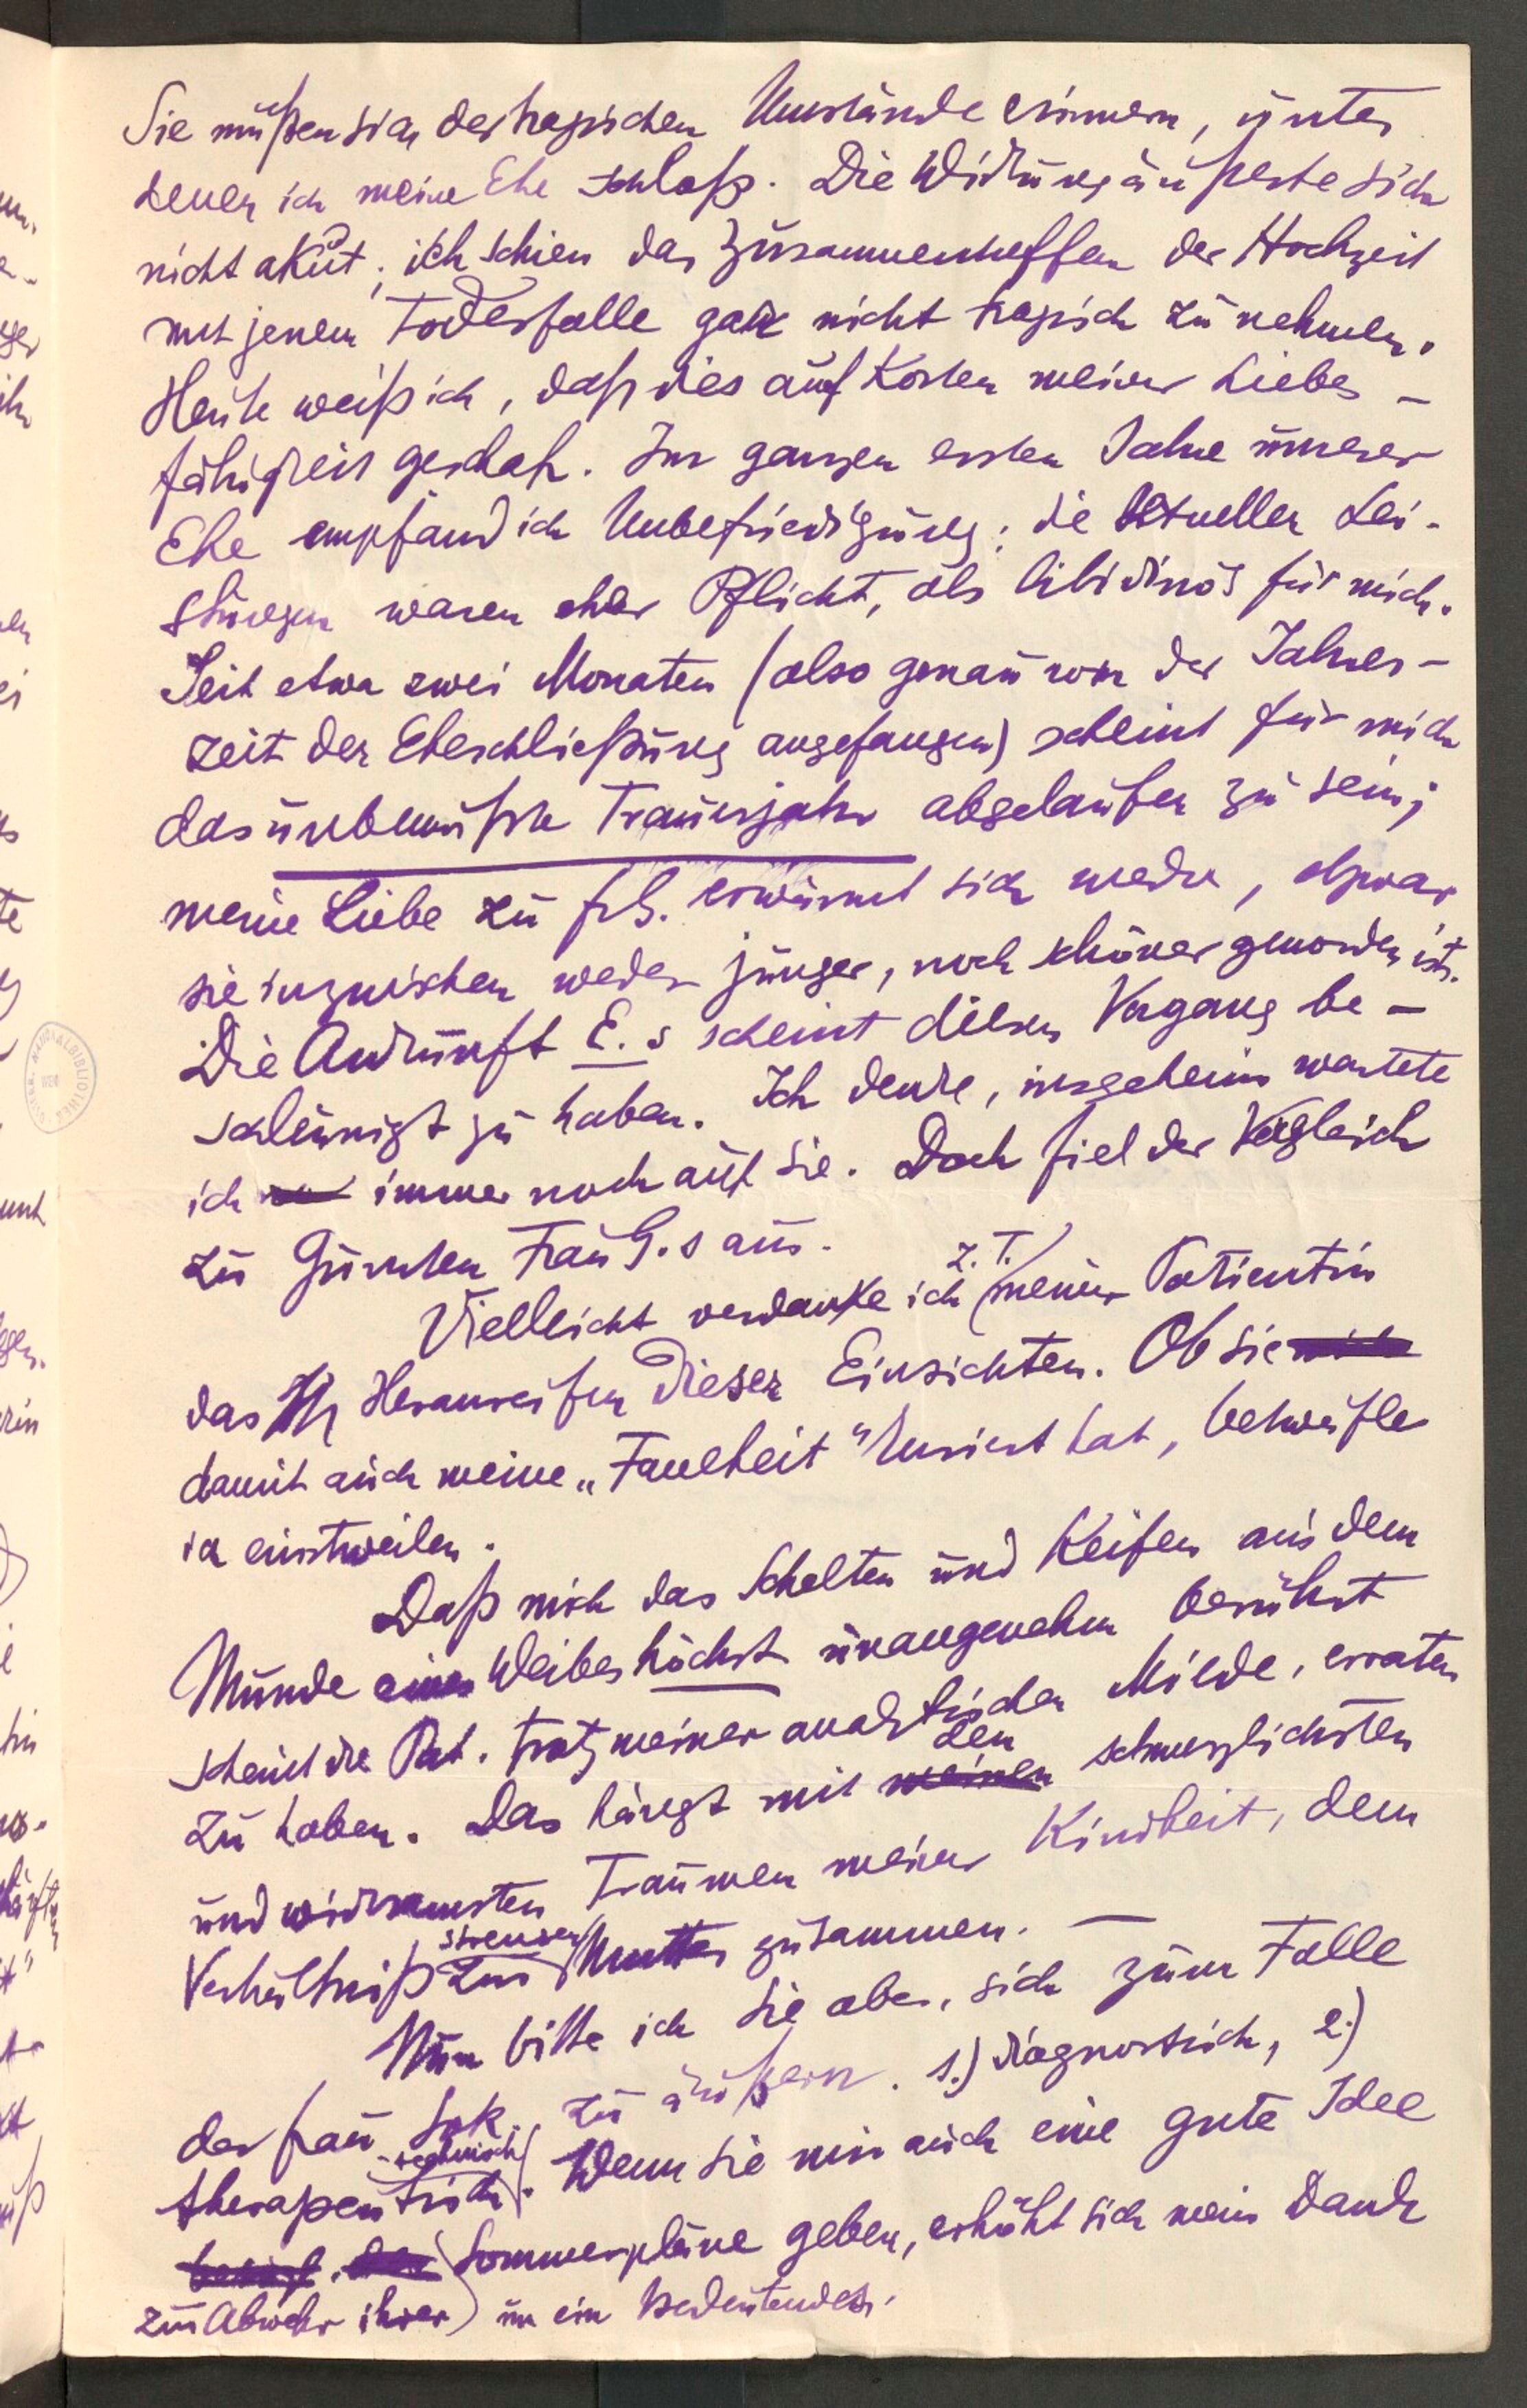 Sie müßen sich der tragischen Umstände erinnern, unter
denen ich meine Ehe schloß. Die Wirkung äußerte sich
nicht akut; ich schien das Zusammentreffen der Hochzeit
mit jenem Todesfalle gar nicht tragisch zu nehmen.
Heute weiß ich, daß dies auf Kosten meiner Liebes-
fähigkeit geschah. Im ganzen ersten Jahre unserer
Ehe empfand ich Unbefriedigung; die sexuellen Lei-
stungen waren eher Pflicht, als libidinös für mich.
Seit etwa zwei Monaten (also genau von der Jahres-
zeit der Eheschließung angefangen) scheint für mich
das unbewußte Trauerjahr abgelaufen zu sein;
meine Liebe zu fr G. erwärmt sich wieder, obzwar
sie inzwischen weder jünger, noch schöner geworden ist.
Die Ankunft E.s scheint diesen Vorgang be-
schleunigt zu haben. Ich denke, insgeheim wartete
ich immer noch auf sie. Doch fiel der Vergleich
zu Gunsten Frau G.s aus.
Vielleicht verdanke ich z. T. meiner Patientin
das Heranreifen dieser Einsichten. Ob sie
damit auch meine „Faulheit" kuriert hat, bezweifle
ich einstweilen.
Daß mich das Schelten und Keifen aus dem
Munde eines Weibes höchst unangenehm berührt
scheint die Pat. trotz meiner analytischen Milde, erraten
zu haben. Das hängt mit den schmerzlichsten
und wirksamsten Traumen meiner Kindheit, dem
Verhältniß zur strengen Mutter zusammen. —
Nun bitte ich Sie aber, sich zum Falle
der Frau Sok. zu äußern. 1.) diagnostisch, 2.)
therapeutisch-technisch. Wenn Sie mir auch eine gute Idee
Sommerpläne geben, erhöht sich mein Dank
zur Abwehr ihrer) um ein Bedeutendes.